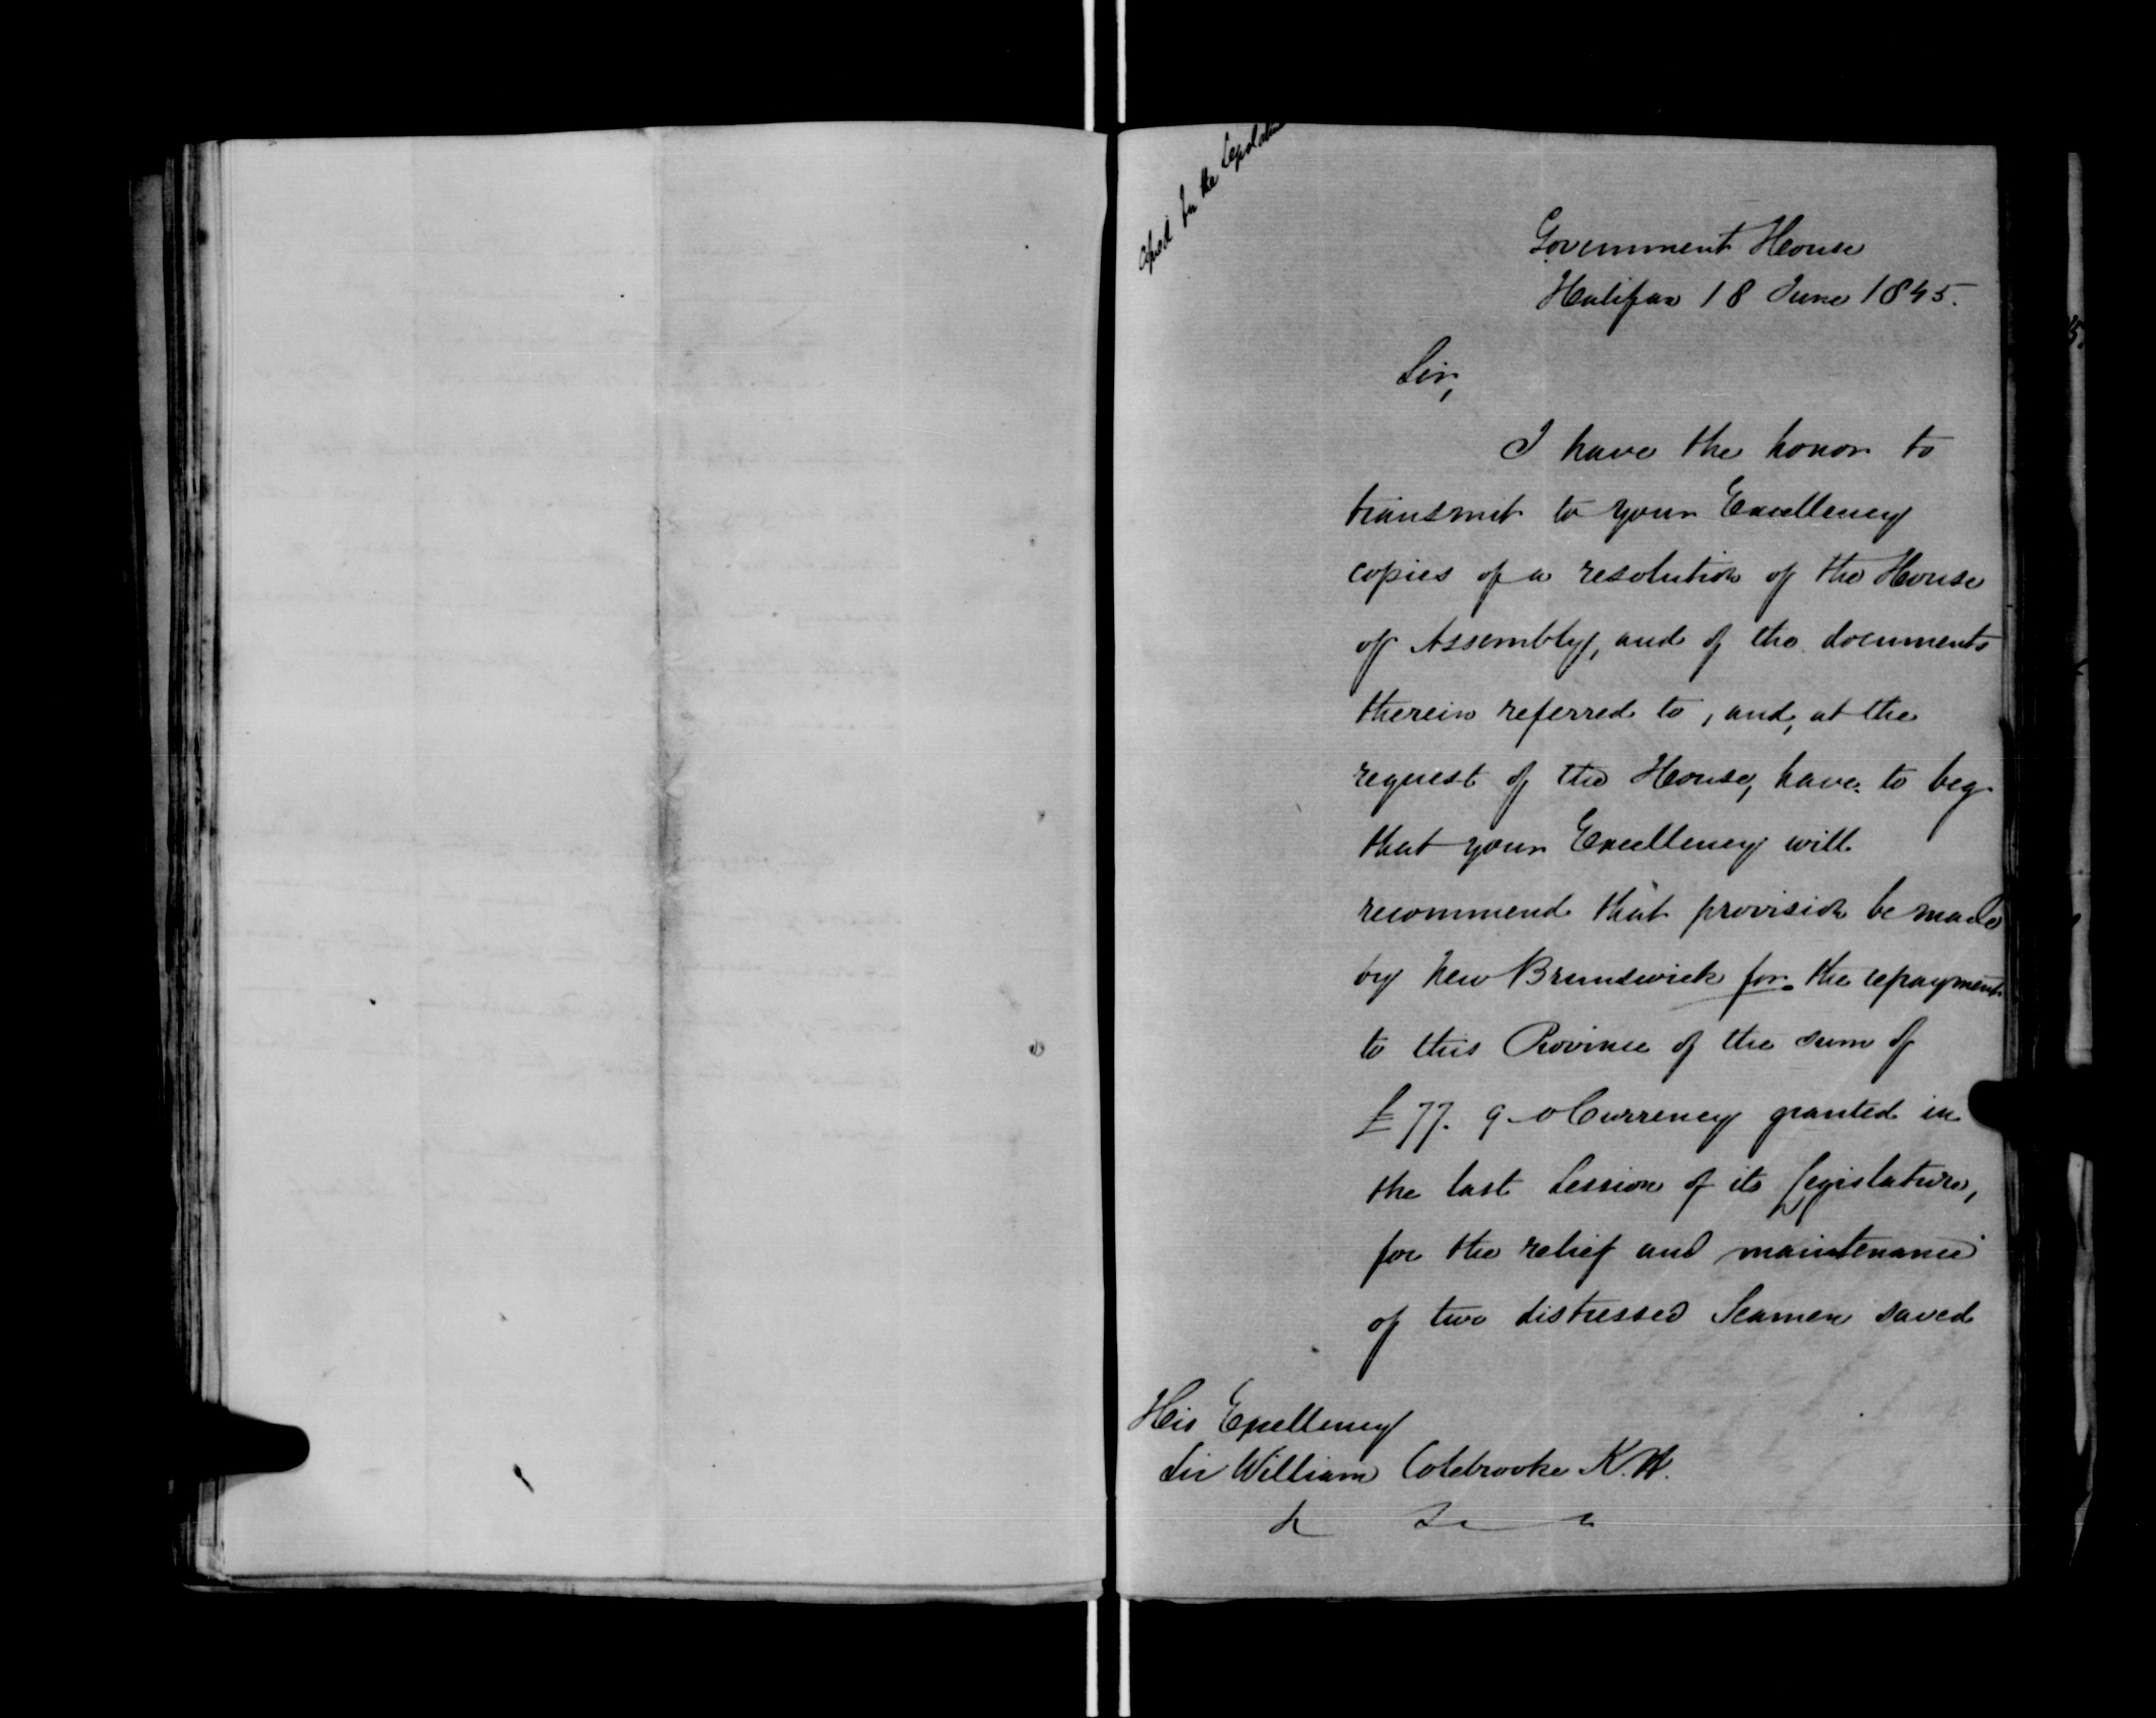 Copied for the Legislature
Government House
Halifax 18 June 1845.
Sir,
I have the honor to
transmit to your Excellency
copies of a resolution of the House
of Assembly, and of the documents
therein referred to, and, at the
request of the House, have to beg
that your Excellency will
recommend that provision be made
by New Brunswick for the repayment
to this Province of the sum of
£77. 9 - 0 Currency granted in
the last Session of its Legislature,
for the relief and maintenance
of two distressed Seamen saved
His Excellency
Sir William Colebrooke K.H.